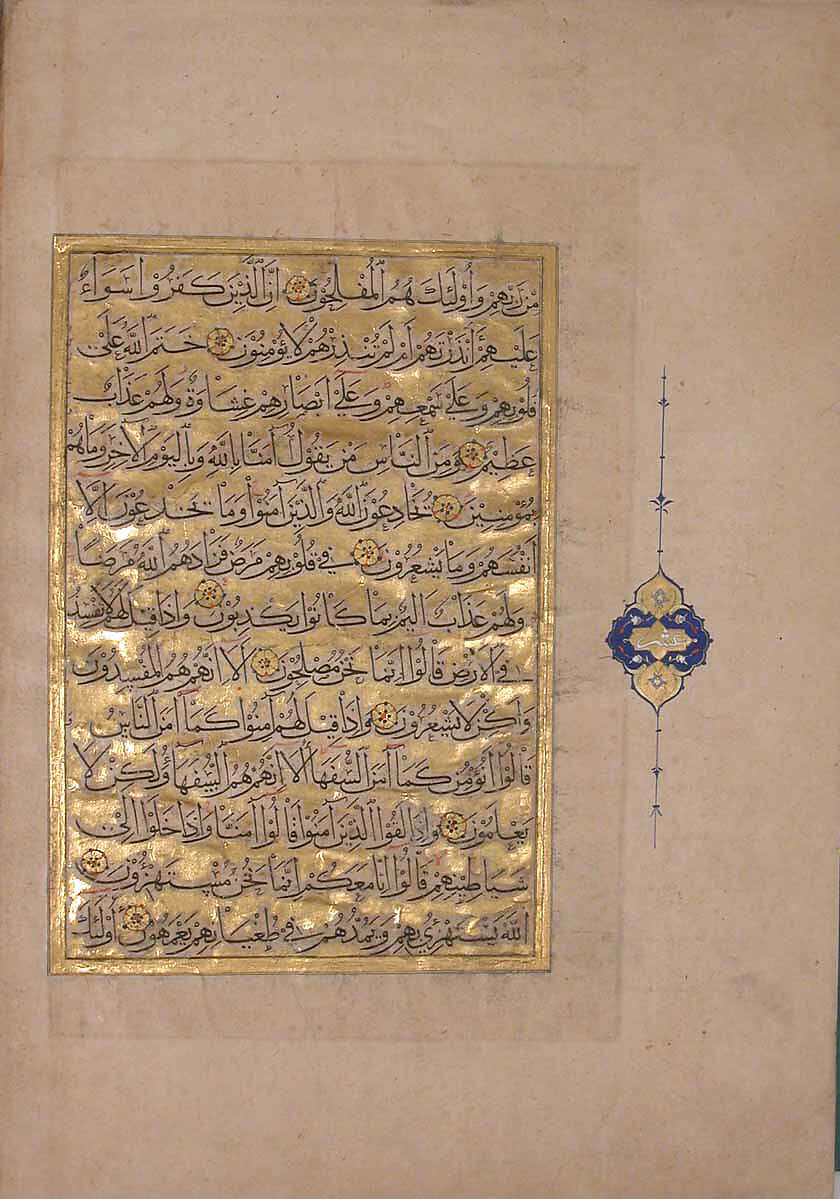 مِنْ رَبِّهِمْ وَأُولَٰئِكَ هُمُ الْمُفْلِحُونَ إِنَّ الَّذِينَ كَفَرُوا سَوَاءٌ
عَلَيْهِمْ أَأَنْذَرْتَهُمْ أَمْ لَمْ تُنْذِرْهُمْ لَا يُؤْمِنُونَ خَتَمَ اللَّهُ عَلَىٰ
قُلُوبِهِمْ وَعَلَىٰ سَمْعِهِمْ وَعَلَىٰ أَبْصَارِهِمْ غِشَاوَةٌ وَلَهُمْ عَذَابٌ
عَظِيمٌ وَمِنَ النَّاسِ مَنْ يَقُولُ آمَنَّا بِاللَّهِ وَبِالْيَوْمِ الْآخِرِ وَمَا هُمْ
بِمُؤْمِنِينَ يُخَادِعُونَ اللَّهَ وَالَّذِينَ آمَنُوا وَمَا يَخْدَعُونَ إِلَّا
أَنْفُسَهُمْ وَمَا يَشْعُرُونَ فِي قُلُوبِهِمْ مَرَضٌ فَزَادَهُمُ اللَّهُ مَرَضًا
وَلَهُمْ عَذَابٌ أَلِيمٌ بِمَا كَانُوا يَكْذِبُونَ وَإِذَا قِيلَ لَهُمْ لَا تُفْسِدُوا
فِي الْأَرْضِ قَالُوا إِنَّمَا نَحْنُ مُصْلِحُونَ أَلَا إِنَّهُمْ هُمُ الْمُفْسِدُونَ
وَلَٰكِنْ لَا يَشْعُرُونَ وَإِذَا قِيلَ لَهُمْ آمِنُوا كَمَا آمَنَ النَّاسُ
قَالُوا أَنُؤْمِنُ كَمَا آمَنَ السُّفَهَاءُ أَلَا إِنَّهُمْ هُمُ السُّفَهَاءُ وَلَٰكِنْ لَا
يَعْلَمُونَ وَإِذَا لَقُوا الَّذِينَ آمَنُوا قَالُوا آمَنَّا وَإِذَا خَلَوْا إِلَىٰ
شَيَاطِينِهِمْ قَالُوا إِنَّا مَعَكُمْ إِنَّمَا نَحْنُ مُسْتَهْزِئُونَ
اللَّهُ يَسْتَهْزِئُ بِهِمْ وَيَمُدُّهُمْ فِي طُغْيَانِهِمْ يَعْمَهُونَ أُولَٰئِكَ
عشر